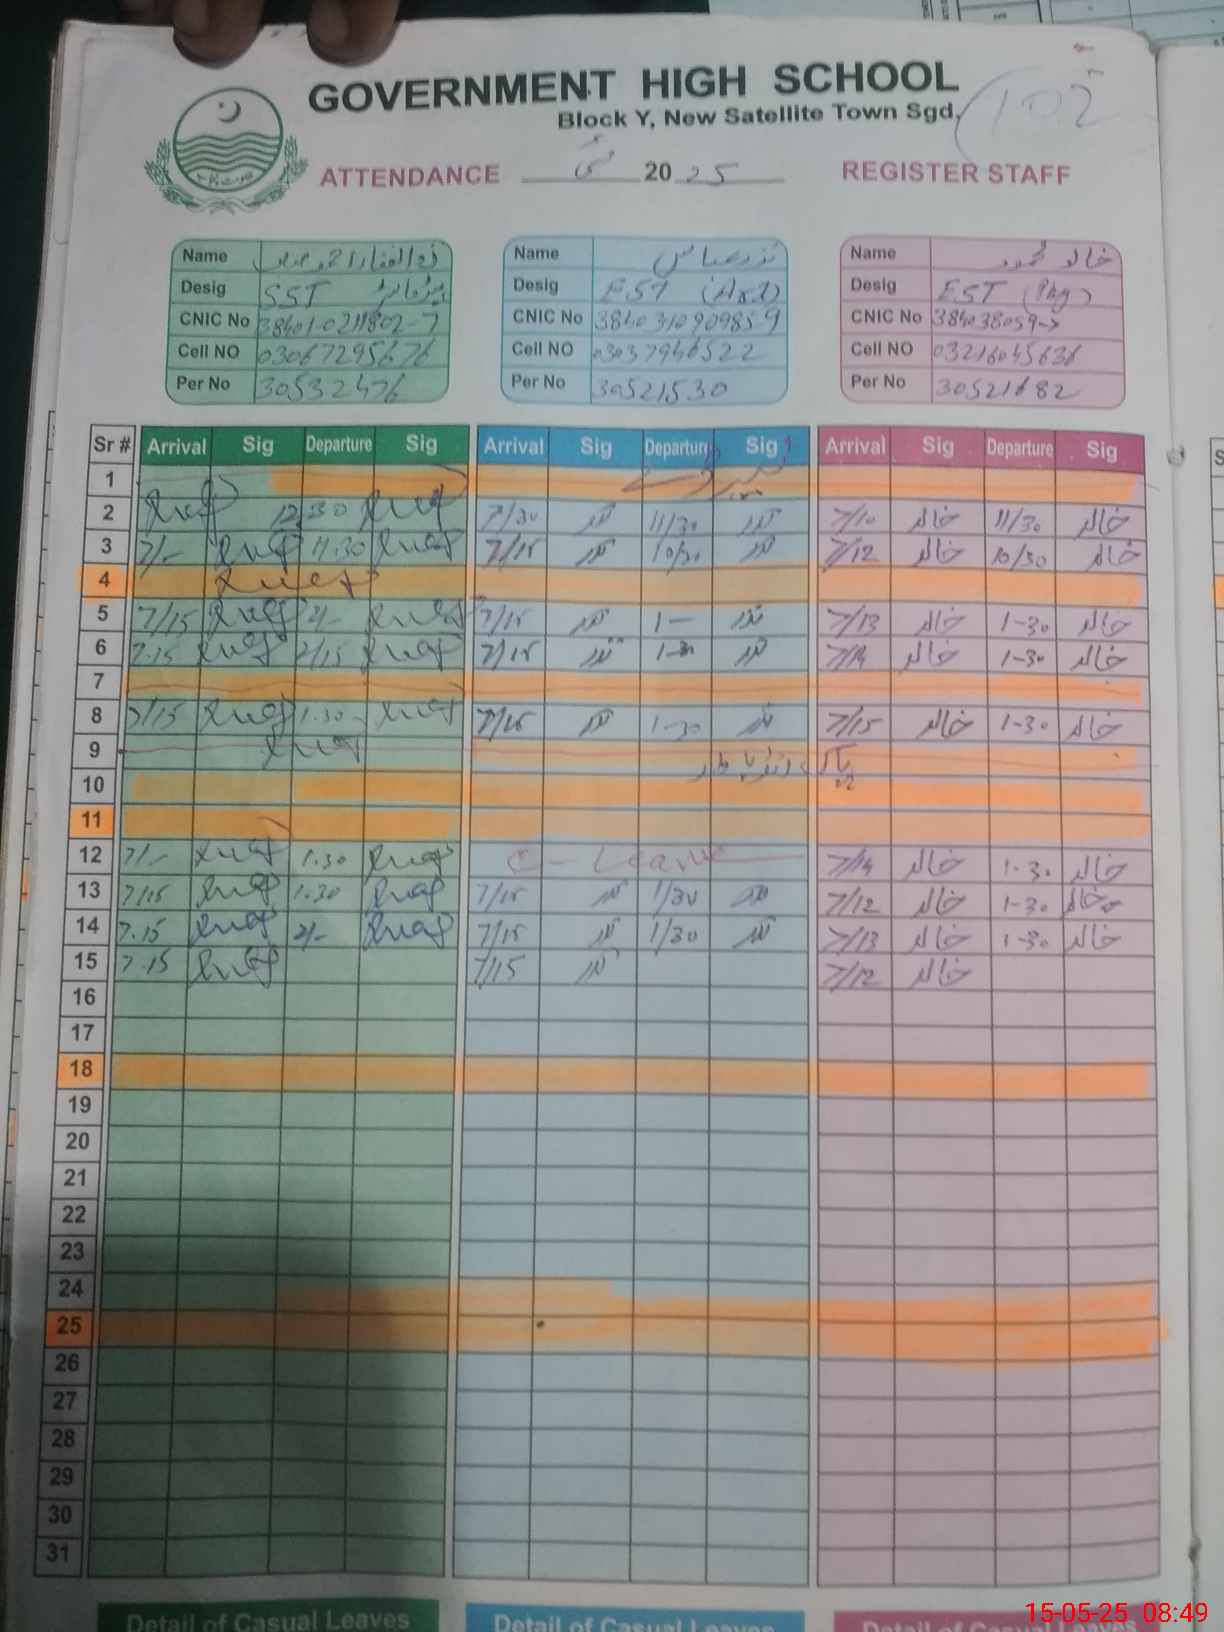 GOVERNMENT HIGH SCHOOL
Block Y, New Satellite Town Sgd.
102
ATTENDANCE مئی 2025 REGISTER STAFF
Name
Desig SST
CNIC No 38401-0211802-7
Cell NO 03067295676
Per No 30532476
Name نذر عباس
Desig EST
CNIC No 3840310909859
Cell NO 03037946522
Per No 30521530
Name خالد محمود
Desig EST
CNIC No
Cell NO 03216045636
Per No 30521682
Sr # Arrival Sig Departure Sig Arrival Sig Departure Sig Arrival Sig Departure Sig
1
2 12 30 7/30 نذر 11/30 نذر 7/10 خالد 11/30 خالد
3 7/- 11.30 7/15 نذر 10/30 نذر 7/12 خالد 10/30 خالد
4
5 7/15 2/- 7/15 نذر 1- نذر 7/13 خالد 1-30 خالد
6 7.15 2/15 7/15 نذر 1-30 نذر 7/14 خالد 1-30 خالد
7
8 7/15 1.30 7/15 نذر 1-30 نذر 7/15 خالد 1-30 خالد
9
10
11
12 7/- 1.30 C-Leave 7/14 خالد 1-30 خالد
13 7/15 1.30 7/15 نذر 1/30 نذر 7/12 خالد 1-30 خالد
14 7.15 2/- 7/15 نذر 1/30 نذر 7/13 خالد 1-30 خالد
15 7.15 7/15 نذر 7/12 خالد
16
17
18
19
20
21
22
23
24
25
26
27
28
29
30
31
Detail of Casual Leaves Detail of Casual Leaves Detail of Casual Leaves
15-05-25 08:49